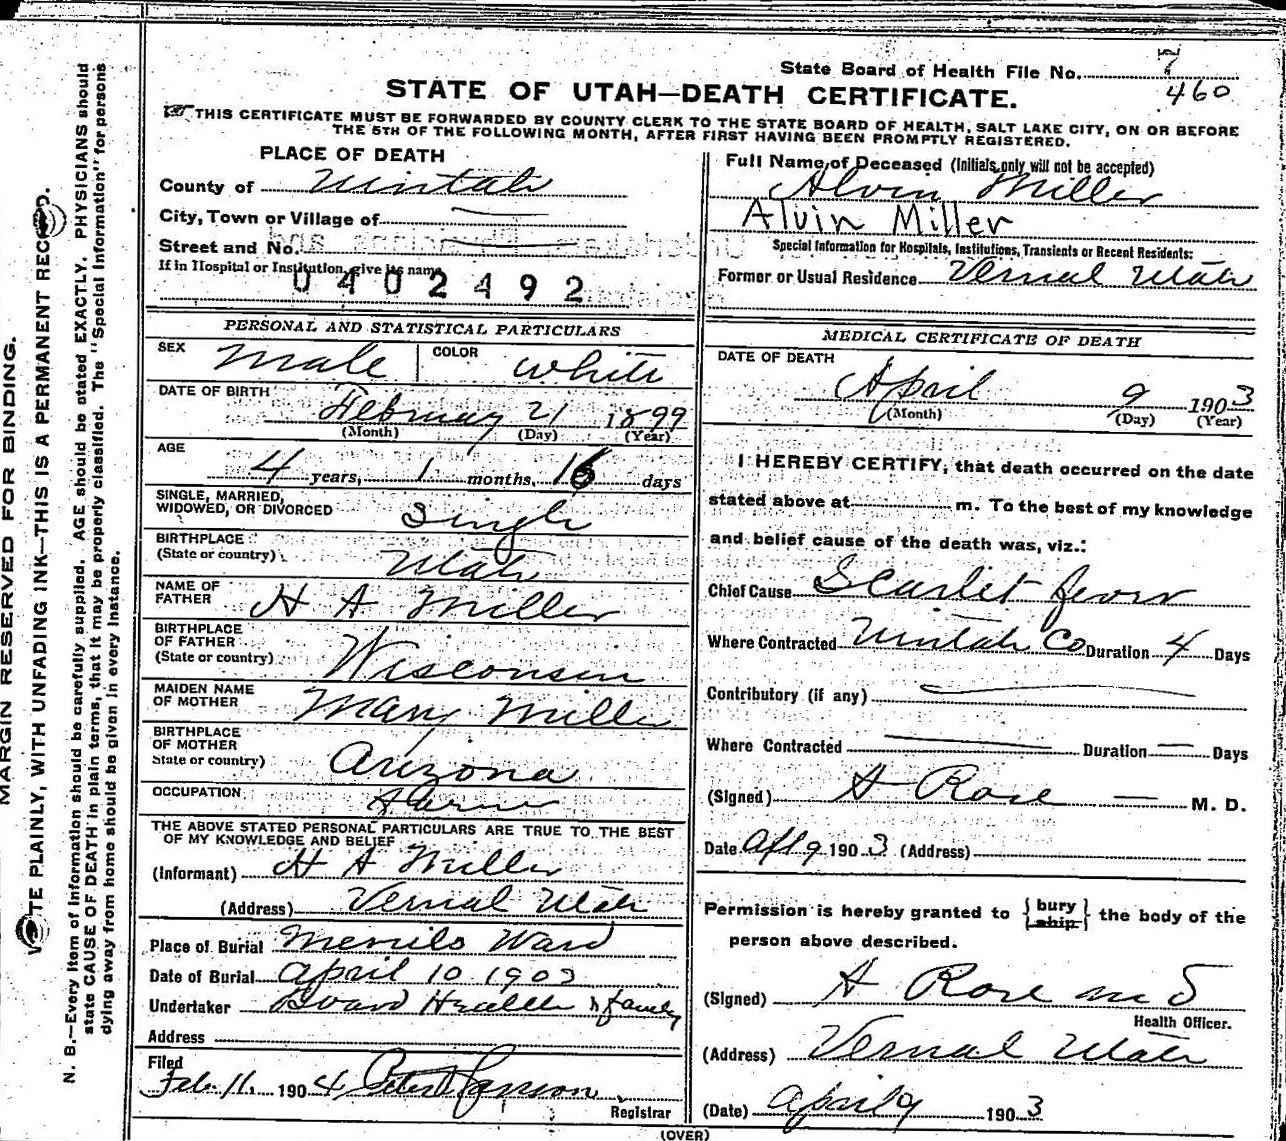 State Board of Health File No. 7
460
STATE OF UTAH—DEATH CERTIFICATE.
THIS CERTIFICATE MUST BE FORWARDED BY COUNTY CLERK TO THE STATE BOARD OF HEALTH, SALT LAKE CITY, ON OR BEFORE
THE 5TH OF THE FOLLOWING MONTH, AFTER FIRST HAVING BEEN PROMPTLY REGISTERED.
PLACE OF DEATH
County of Uintah
City, Town or Village of
Street and No.
If in Hospital or Institution, give its name
0402492
PERSONAL AND STATISTICAL PARTICULARS
SEX Male COLOR White
DATE OF BIRTH
February 21 1899
(Month) (Day) (Year)
AGE
4 years, 1 months, 16 days
SINGLE, MARRIED,
WIDOWED, OR DIVORCED Single
BIRTHPLACE
(State or country) Utah
NAME OF
FATHER H A Miller
BIRTHPLACE
OF FATHER
(State or country) Wisconsin
MAIDEN NAME
OF MOTHER Mary Miller
BIRTHPLACE
OF MOTHER
State or country) Arizona
OCCUPATION
THE ABOVE STATED PERSONAL PARTICULARS ARE TRUE TO THE BEST
OF MY KNOWLEDGE AND BELIEF
(Informant) H A Miller
(Address) Vernal Utah
Place of Burial Merrils Ward
Date of Burial April 10 1903
Undertaker Board Health & family
Address
Filed
Feb. 11. 1904 Peter
Registrar
Full Name of Deceased (Initials only will not be accepted)
Alvin Miller
Alvin Miller
Special Information for Hospitals, Institutions, Transients or Recent Residents:
Former or Usual Residence Vernal Utah
MEDICAL CERTIFICATE OF DEATH
DATE OF DEATH
April 9 1903
(Month) (Day) (Year)
I HEREBY CERTIFY, that death occurred on the date
stated above at m. To the best of my knowledge
and belief cause of the death was, viz.:
Chief Cause Scarlet fever
Where Contracted Uintah Co Duration 4 Days
Contributory (if any)
Where Contracted Duration — Days
(Signed) H Rose — M. D.
Date Apl 9 1903 (Address)
Permission is hereby granted to {bury ship} the body of the
person above described.
(Signed) H Rose
Health Officer.
(Address) Vernal Utah
(Date) April 9 1903
(OVER)
MARGIN RESERVED FOR BINDING.
TE PLAINLY, WITH UNFADING INK—THIS IS A PERMANENT RECORD.
N. B.—Every item of information should be carefully supplied. AGE should be stated EXACTLY. PHYSICIANS should
state CAUSE OF DEATH in plain terms, that it may be properly classified. The "Special Information" for persons
dying away from home should be given in every instance.